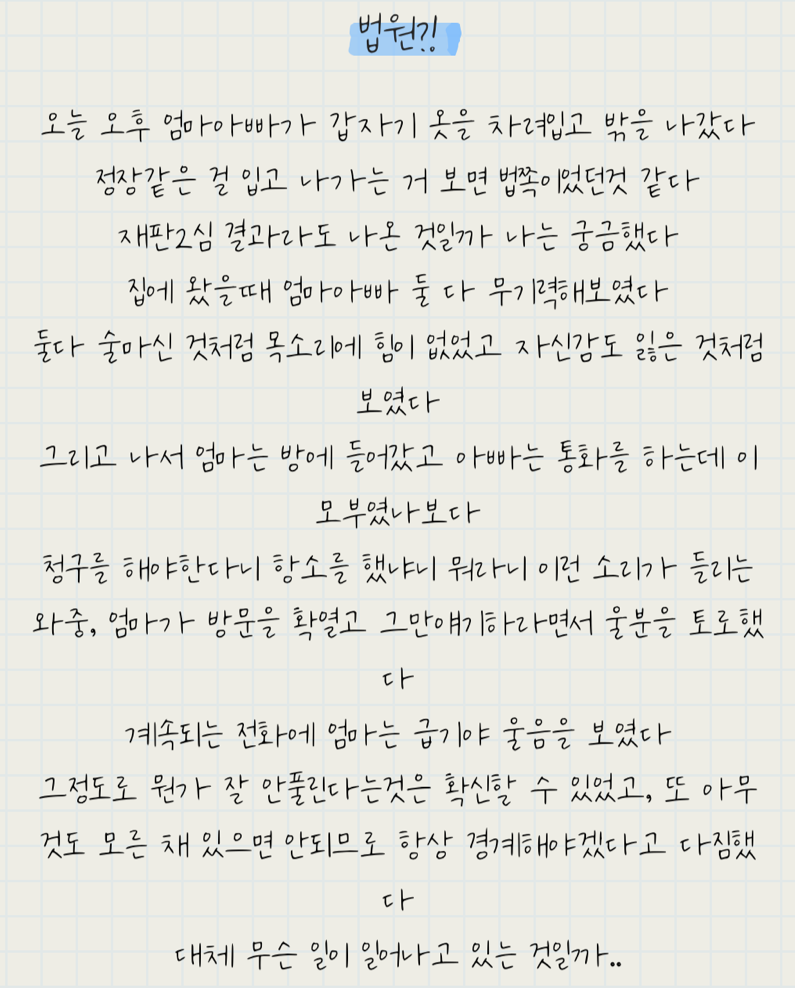 법원?!
오늘 오후 엄마아빠가 갑자기 옷을 차려입고 밖을 나갔다
정장같은 걸 입고 나가는 거 보면 법쪽이었던것 같다
재판2심 결과라도 나온 것일까 나는 궁금했다
집에 왔을때 엄마아빠 둘 다 무기력해보였다
둘다 술마신 것처럼 목소리에 힘이 없었고 자신감도 잃은 것처럼
보였다
그리고 나서 엄마는 방에 들어갔고 아빠는 통화를 하는데 이
모부였나보다
청구를 해야한다니 항소를 했냐니 뭐라니 이런 소리가 들리는
와중, 엄마가 방문을 확열고 그만얘기하라면서 울분을 토로했
다
계속되는 전화에 엄마는 급기야 울음을 보였다
그정도로 뭔가 잘 안풀린다는것은 확신할 수 있었고, 또 아무
것도 모른 채 있으면 안되므로 항상 경계해야겠다고 다짐했
다
대체 무슨 일이 일어나고 있는 것일까..